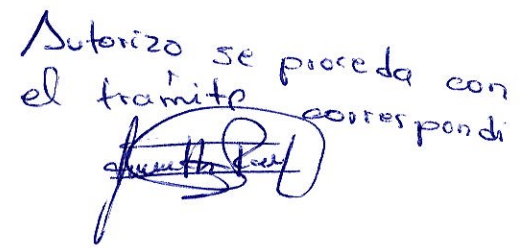 Autorizo se proceda con
el tramite correspondi